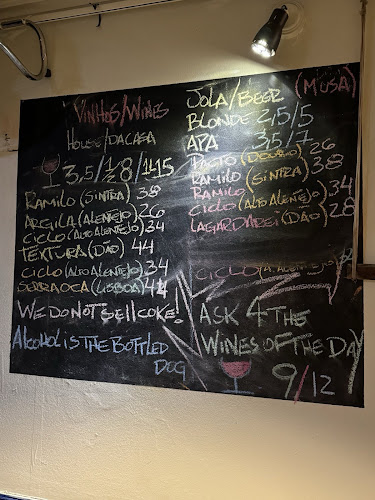 VINHOS/WINES
HOUSE/DACASA
3,5/½8/1L15
RAMILO (SINTRA) 38
ARGILA (ALENTEJO) 26
CICLO (ALTO ALENTEJO) 34
TEXTURA (DÃO) 44
CICLO (ALTO ALENTEJO) 34
SERRAOCA (LISBOA) 44
WE DO NOT SELL COKE!
ALCOHOL IS THE BOTTLED
DOG
JOLA/BEER (MUSA)
BLONDE 2,5/5
APA 3,5/7
(DOURO) 26
RAMILO (SINTRA) 38
RAMILO
CICLO (ALTO ALENTEJO) 34
LAGAR DAREI (DÃO) 28
CICLO (ALENTEJO)
ASK 4 THE
WINES OF THE DAY
9/12